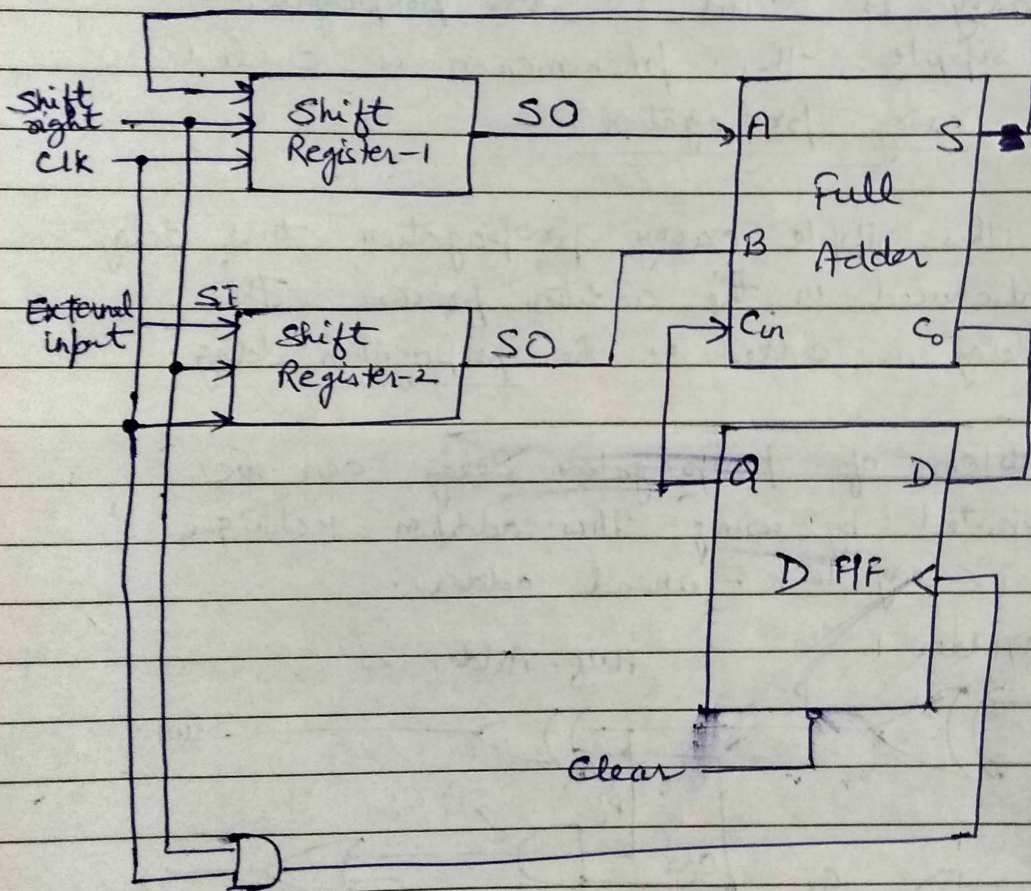 Shift
right
Clk
Shift
Register-1
SO
A
S
Full
Adder
B
Cin
Co
External
input
SI
Shift
Register-2
SO
Q
D
D F/F
Clear